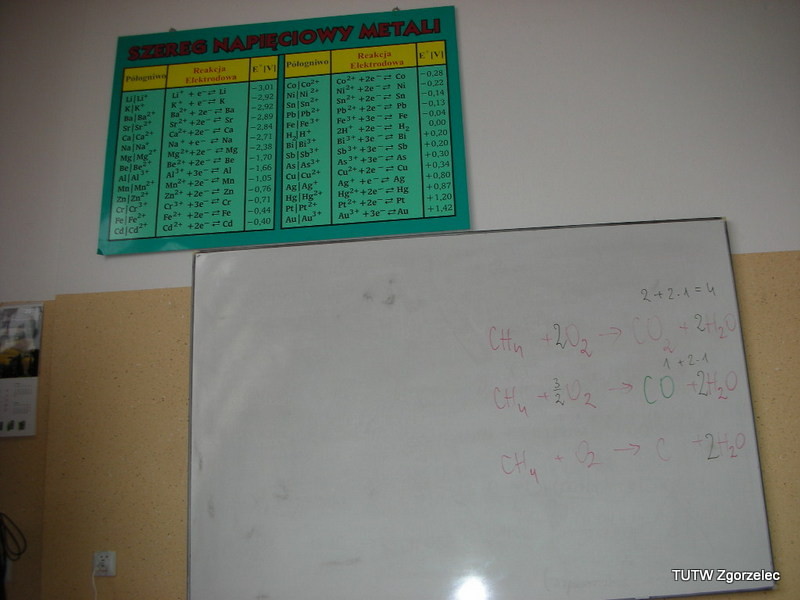 SZEREG NAPIĘCIOWY METALI
Półogniwo Reakcja Elektrodowa E°[V]
Li|Li⁺ Li⁺ + e⁻ ⇌ Li -3,01
K|K⁺ K⁺ + e⁻ ⇌ K -2,92
Ba|Ba²⁺ Ba²⁺ +2e⁻ ⇌ Ba -2,92
Sr|Sr²⁺ Sr²⁺ +2e⁻ ⇌ Sr -2,89
Ca|Ca²⁺ Ca²⁺ +2e⁻ ⇌ Ca -2,84
Na|Na⁺ Na⁺ + e⁻ ⇌ Na -2,71
Mg|Mg²⁺ Mg²⁺ +2e⁻ ⇌ Mg -2,38
Be|Be²⁺ Be²⁺ +2e⁻ ⇌ Be -1,70
Al|Al³⁺ Al³⁺ +3e⁻ ⇌ Al -1,66
Mn|Mn²⁺ Mn²⁺ +2e⁻ ⇌ Mn -1,05
Zn|Zn²⁺ Zn²⁺ +2e⁻ ⇌ Zn -0,76
Cr|Cr³⁺ Cr³⁺ +3e⁻ ⇌ Cr -0,71
Fe|Fe²⁺ Fe²⁺ +2e⁻ ⇌ Fe -0,44
Cd|Cd²⁺ Cd²⁺ +2e⁻ ⇌ Cd -0,40
Półogniwo Reakcja Elektrodowa E°[V]
Co|Co²⁺ Co²⁺ +2e⁻ ⇌ Co -0,28
Ni|Ni²⁺ Ni²⁺ +2e⁻ ⇌ Ni -0,22
Sn|Sn²⁺ Sn²⁺ +2e⁻ ⇌ Sn -0,14
Pb|Pb²⁺ Pb²⁺ +2e⁻ ⇌ Pb -0,13
Fe|Fe³⁺ Fe³⁺ +3e⁻ ⇌ Fe -0,04
H₂|H⁺ 2H⁺ +2e⁻ ⇌ H₂ 0,00
Bi|Bi³⁺ Bi³⁺ +3e⁻ ⇌ Bi +0,20
Sb|Sb³⁺ Sb³⁺ +3e⁻ ⇌ Sb +0,20
As|As³⁺ As³⁺ +3e⁻ ⇌ As +0,30
Cu|Cu²⁺ Cu²⁺ +2e⁻ ⇌ Cu +0,34
Ag|Ag⁺ Ag⁺ + e⁻ ⇌ Ag +0,80
Hg|Hg²⁺ Hg²⁺ +2e⁻ ⇌ Hg +0,87
Pt|Pt²⁺ Pt²⁺ +2e⁻ ⇌ Pt +1,20
Au|Au³⁺ Au³⁺ +3e⁻ ⇌ Au +1,42
2+2·1=4
CH₄ + 2O₂ → CO₂ + 2H₂O
1+2·1
CH₄ + 3/2 O₂ → CO + 2H₂O
CH₄ + O₂ → C + 2H₂O
TUTW Zgorzelec